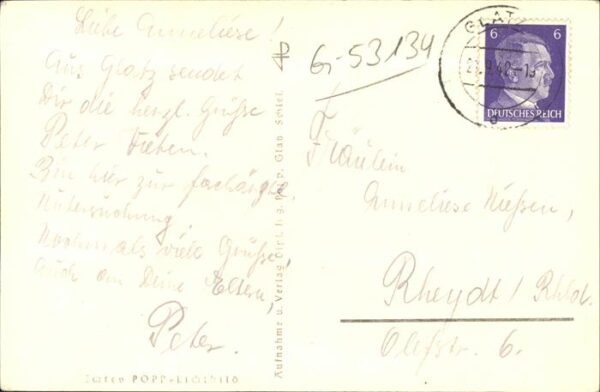 Liebe Anneliese!
Aus Glatz sendet
Dir die herzl. Grüße
Peter
Bin hier zur fachärztl.
Untersuchung.
Nochmals viele Grüße,
auch an Deine Eltern,
Peter.
POPP-Lichtbild
Aufnahme u. Verlag Dirk. Ing. Popp, Glatz
G-53134
GLATZ
6 6
DEUTSCHES REICH
Fräulein
Anneliese Nießen,
Rheydt / Rhld.
6.